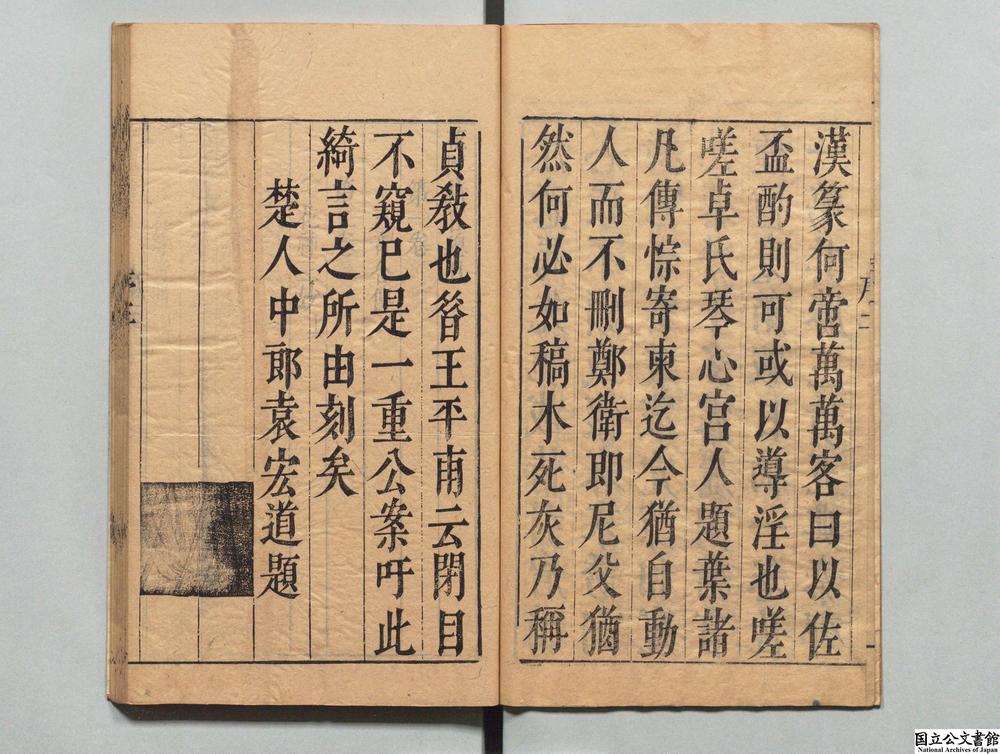 漢篆何啻萬萬客曰以佐
盃酌則可或以導淫也嗟
嗟卓氏琴心宮人題葉諸
凡傳悰寄柬迄今猶自動
人而不刪鄭衛即尼父猶
然何必如稿木死灰乃稱
貞敎也昝王平甫云閉目
不窺已是一重公案吁此
綺言之所由刻矣
楚人中郎袁宏道題
国立公文書館
National Archives of Japan